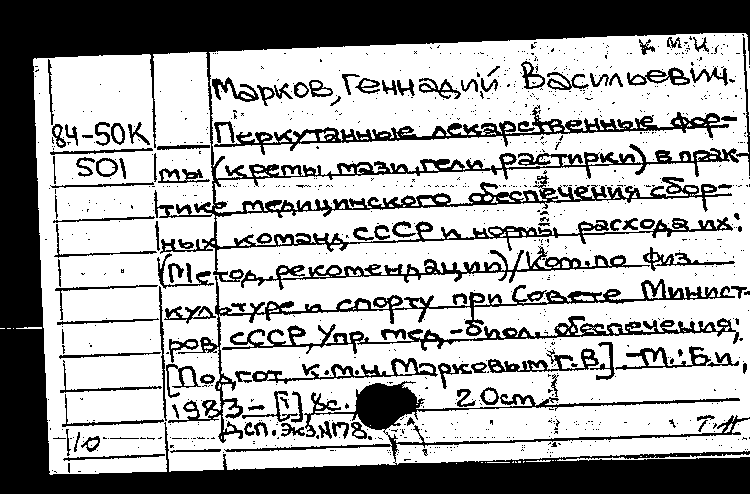 к.м.н.
Марков, Геннадий Васильевич.
84-50К Перкутанные лекарственные фор-
501 мы (кремы, мази, гели, растирки) в прак-
тике медицинского обеспечения сбор-
ных команд СССР и нормы расхода их:
(Метод. рекомендации)/Ком. по физ.
культуре и спорту при Совете Минист-
ров СССР, Упр. мед.-биол. обеспечения;
[Подгот. к.м.н. Марковым Г.В.]. -М.: Б.и.,
1983 - [1], 8с. 20 см
Дсп. Экз. №178.
10